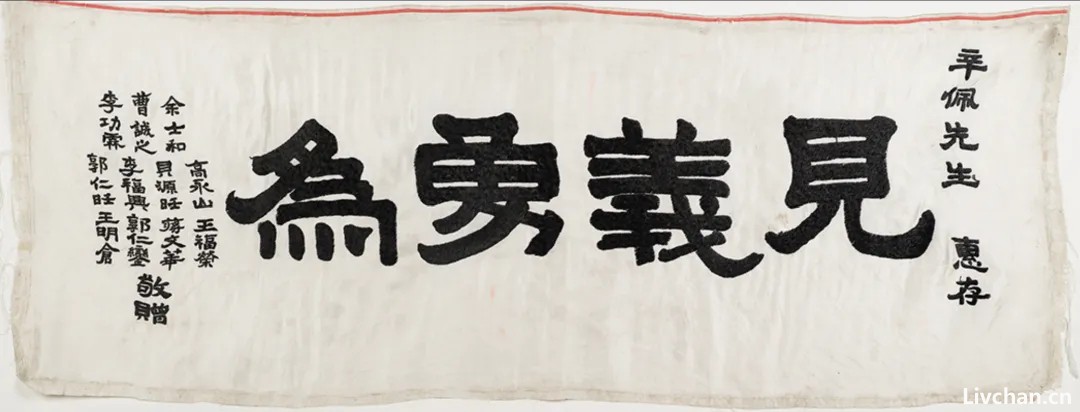 辛佩先生 惠存
見義勇為
高永山 王福榮
余士和 貝源旺 蔣文華
曹誠之 李福興 郭仁鑾
李功霖 郭仁旺 王明倉
敬贈
Livchan.cn